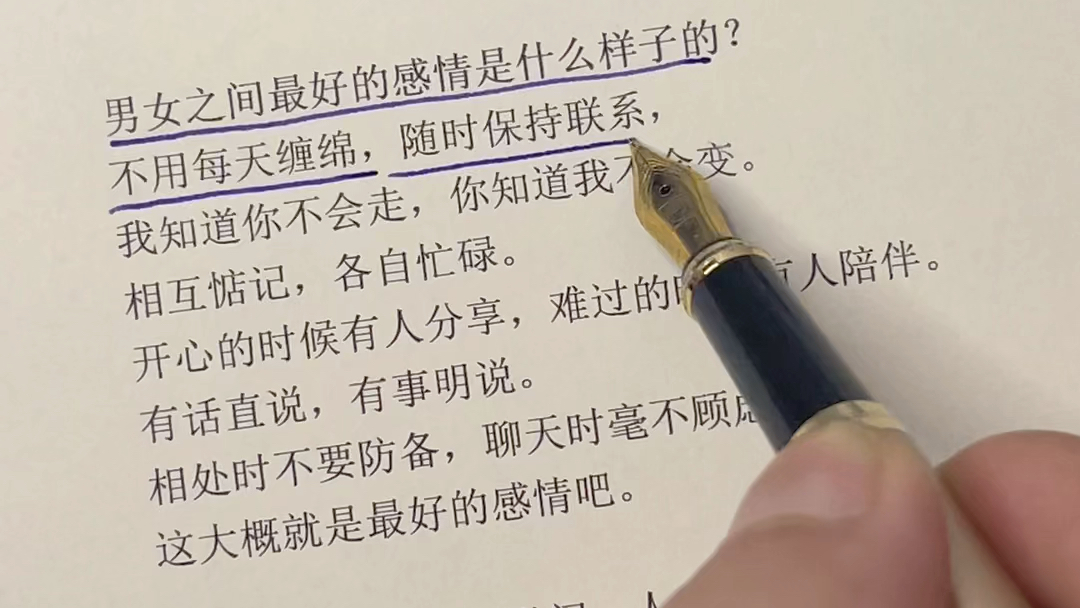 男女之间最好的感情是什么样子的？
不用每天缠绵，随时保持联系，
我知道你不会走，你知道我不会变。
相互惦记，各自忙碌。
开心的时候有人分享，难过的时有人陪伴。
有话直说，有事明说。
相处时不要防备，聊天时毫不顾虑
这大概就是最好的感情吧。